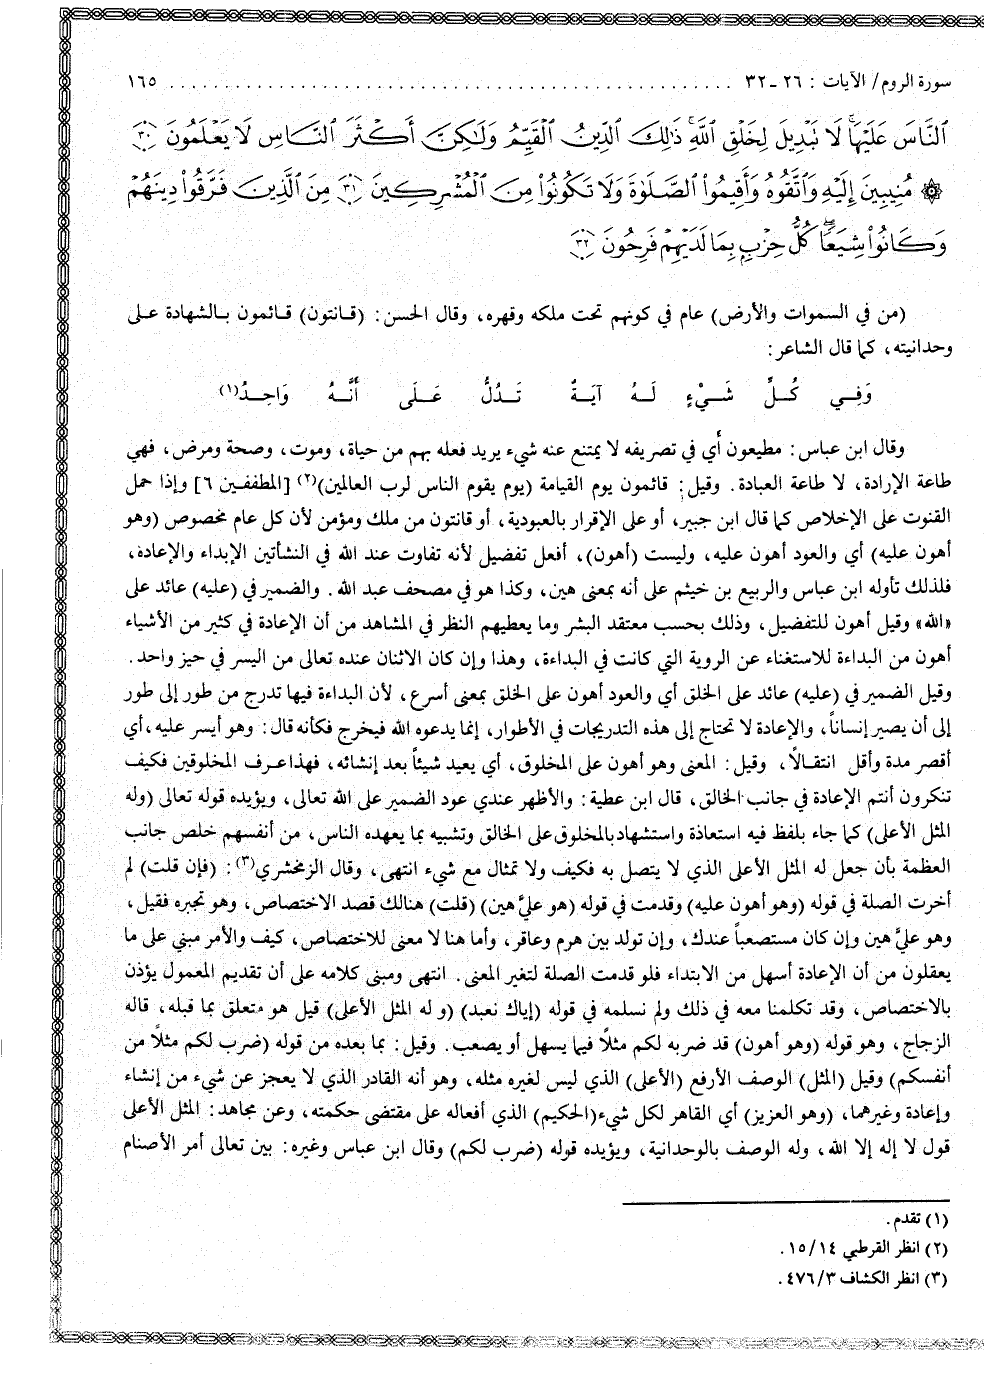 سورة الروم/ الآيات : ٢٦ ـ ٣٢ ........................................................ ١٦٥
النَّاسَ عَلَيْهَا لَا تَبْدِيلَ لِخَلْقِ اللَّهِ ذَٰلِكَ الدِّينُ الْقَيِّمُ وَلَٰكِنَّ أَكْثَرَ النَّاسِ لَا يَعْلَمُونَ ﴿٣٠﴾
۞ مُنِيبِينَ إِلَيْهِ وَاتَّقُوهُ وَأَقِيمُوا الصَّلَوٰةَ وَلَا تَكُونُوا مِنَ الْمُشْرِكِينَ ﴿٣١﴾ مِنَ الَّذِينَ فَرَّقُوا دِينَهُمْ
وَكَانُوا شِيَعًا كُلُّ حِزْبٍ بِمَا لَدَيْهِمْ فَرِحُونَ ﴿٣٢﴾
(من في السموات والأرض) عام في كونهم تحت ملكه وقهره، وقال الحسن: (قانتون) قائمون بالشهادة على
وحدانيته، كما قال الشاعر:
وَفِي كُلِّ شَيْءٍ لَهُ آيَةٌ تَدُلُّ عَلَى أَنَّهُ وَاحِدُ(١)
وقال ابن عباس: مطيعون أي في تصريفه لا يمتنع عنه شيء يريد فعله بهم من حياة، وموت، وصحة ومرض، فهي
طاعة الإرادة، لا طاعة العبادة. وقيل: قائمون يوم القيامة (يوم يقوم الناس لرب العالمين)(٢) [المطففين ٦] وإذا حمل
القنوت على الإخلاص كما قال ابن جبير، أو على الإقرار بالعبودية، أو قانتون من ملك ومؤمن لأن كل عام مخصوص (وهو
أهون عليه) أي والعود أهون عليه، وليست (أهون)، أفعل تفضيل لأنه تفاوت عند الله في النشأتين الإبداء والإعادة،
فلذلك تأوله ابن عباس والربيع بن خيثم على أنه بمعنى هين، وكذا هو في مصحف عبد الله. والضمير في (عليه) عائد على
«الله» وقيل أهون للتفضيل، وذلك بحسب معتقد البشر وما يعطيهم النظر في المشاهد من أن الإعادة في كثير من الأشياء
أهون من البداءة للاستغناء عن الروية التي كانت في البداءة، وهذا وإن كان الاثنان عنده تعالى من اليسر في حيز واحد.
وقيل الضمير في (عليه) عائد على الخلق أي والعود أهون على الخلق بمعنى أسرع، لأن البداءة فيها تدرج من طور إلى طور
إلى أن يصير إنساناً، والإعادة لا تحتاج إلى هذه التدريجات في الأطوار، إنما يدعوه الله فيخرج فكأنه قال: وهو أيسر عليه، أي
أقصر مدة وأقل انتقالًا، وقيل: المعنى وهو أهون على المخلوق، أي يعيد شيئاً بعد إنشائه، فهذا عرف المخلوقين فكيف
تنكرون أنتم الإعادة في جانب الخالق، قال ابن عطية: والأظهر عندي عود الضمير على الله تعالى، ويؤيده قوله تعالى (وله
المثل الأعلى) كما جاء بلفظ فيه استعاذة واستشهاد بالمخلوق على الخالق وتشبيه بما يعهده الناس، من أنفسهم خلص جانب
العظمة بأن جعل له المثل الأعلى الذي لا يتصل به فكيف ولا تمثال مع شيء انتهى، وقال الزمخشري(٣): (فإن قلت) لم
أخرت الصلة في قوله (وهو أهون عليه) وقدمت في قوله (هو عليّ هين) (قلت) هنالك قصد الاختصاص، وهو تجبره فقيل،
وهو عليّ هين وإن كان مستصعباً عندك، وإن تولد بين هرم وعاقر، وأما هنا لا معنى للاختصاص، كيف والأمر مبني على ما
يعقلون من أن الإعادة أسهل من الابتداء فلو قدمت الصلة لتغير المعنى. انتهى ومبنى كلامه على أن تقديم المعمول يؤذن
بالاختصاص، وقد تكلمنا معه في ذلك ولم نسلمه في قوله (إياك نعبد) (و له المثل الأعلى) قيل هو متعلق بما قبله، قاله
الزجاج، وهو قوله (وهو أهون) قد ضربه لكم مثلًا فيما يسهل أو يصعب. وقيل: بما بعده من قوله (ضرب لكم مثلًا من
أنفسكم) وقيل (المثل) الوصف الأرفع (الأعلى) الذي ليس لغيره مثله، وهو أنه القادر الذي لا يعجز عن شيء من إنشاء
وإعادة وغيرهما، (وهو العزيز) أي القاهر لكل شيء(الحكيم) الذي أفعاله على مقتضى حكمته، وعن مجاهد: المثل الأعلى
قول لا إله إلا الله، وله الوصف بالوحدانية، ويؤيده قوله (ضرب لكم) وقال ابن عباس وغيره: بين تعالى أمر الأصنام
(١) تقدم.
(٢) انظر القرطبي ١٤/ ١٥.
(٣) انظر الكشاف ٣/ ٤٧٦.